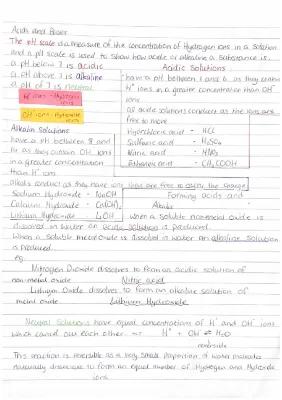 Acids and Bases
The pH scale is a measure of the concentration of Hydrogen ions in a solution
and a pH scale is used to show how acidic or alkaline a substance is.
a pH below 7 is acidic
a pH above 7 is alkaline
a pH of 7 is neutral
H⁺ ions - Hydrogen ions
OH⁻ ions - Hydroxide ions
Acidic Solutions
have a pH between 1 and 6 as they contain
H⁺ ions in a greater concentration than OH⁻
ions
as acidic solutions conduct as the ions are
free to move
Hydrochloric acid - HCL
Sulfuric acid - H₂SO₄
Nitric acid - HNO₃
Ethanoic acid - CH₃COOH
Alkaline Solutions
have a pH between 8 and
14 as they contain OH⁻ ions
in a greater concentration
than H⁺ ions
alkalis conduct as they have ions free to carry the charge
Sodium Hydroxide - NaOH
Calcium Hydroxide - Ca(OH)₂
Lithium Hydroxide - LiOH
Forming acids and
Alkalis
when a soluble non-metal oxide is
dissolved in water an acidic solution is produced.
When a soluble metal oxide is dissolved in water an alkaline solution
is produced.
eg.
Nitrogen Dioxide dissolves to form an acidic solution of
non-metal oxide
Nitric acid
Lithium Oxide dissolves to form an alkaline solution of
metal oxide
Lithium Hydroxide
Neutral Solutions have equal concentrations of H⁺ and OH⁻ ions
which cancel out each other
H⁺ + OH⁻ ⇌ H₂O
reversible
This reaction is reversible as a very small proportion of water molecules
naturally dissociate to form an equal number of Hydrogen and Hydroxide
ions